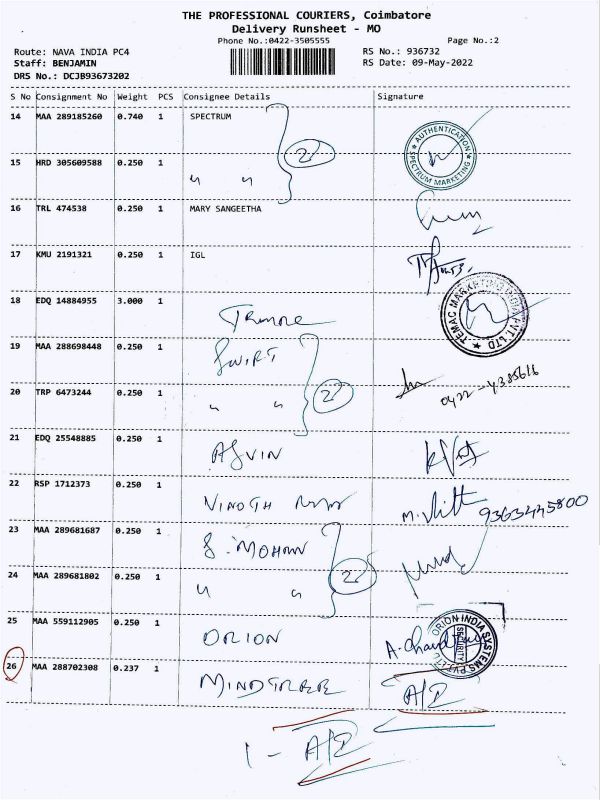 THE PROFESSIONAL COURIERS, Coimbatore
Delivery Runsheet - MO
Phone No.:0422-3505555 Page No.:2
Route: NAVA INDIA PC4 RS No.: 936732
Staff: BENJAMIN RS Date: 09-May-2022
DRS No.: DCJB93673202
S No Consignment No Weight PCS Consignee Details Signature
14 MAA 289185260 0.740 1 SPECTRUM
2
AUTHENTICATION SPECTRUM MARKETING
15 HRD 305609588 0.250 1 " "
16 TRL 474538 0.250 1 MARY SANGEETHA
17 KMU 2191321 0.250 1 IGL
18 EDQ 14884955 3.000 1
TEMAC MARKETING INDIA PVT. LTD
19 MAA 288698448 0.250 1 SWIFT
20 TRP 6473244 0.250 1 " " 2 0422-4385616
21 EDQ 25548885 0.250 1 ASVIN
22 RSP 1712373 0.250 1 VINOTH 9363445800
23 MAA 289681687 0.250 1 S. MOHAN
24 MAA 289681802 0.250 1 " " 2
25 MAA 559112905 0.250 1 ORION
ORION INDIA SYSTEMS PVT. LTD SECURITY
26 MAA 288702308 0.237 1 MINDTREE A/D
1 - A/D